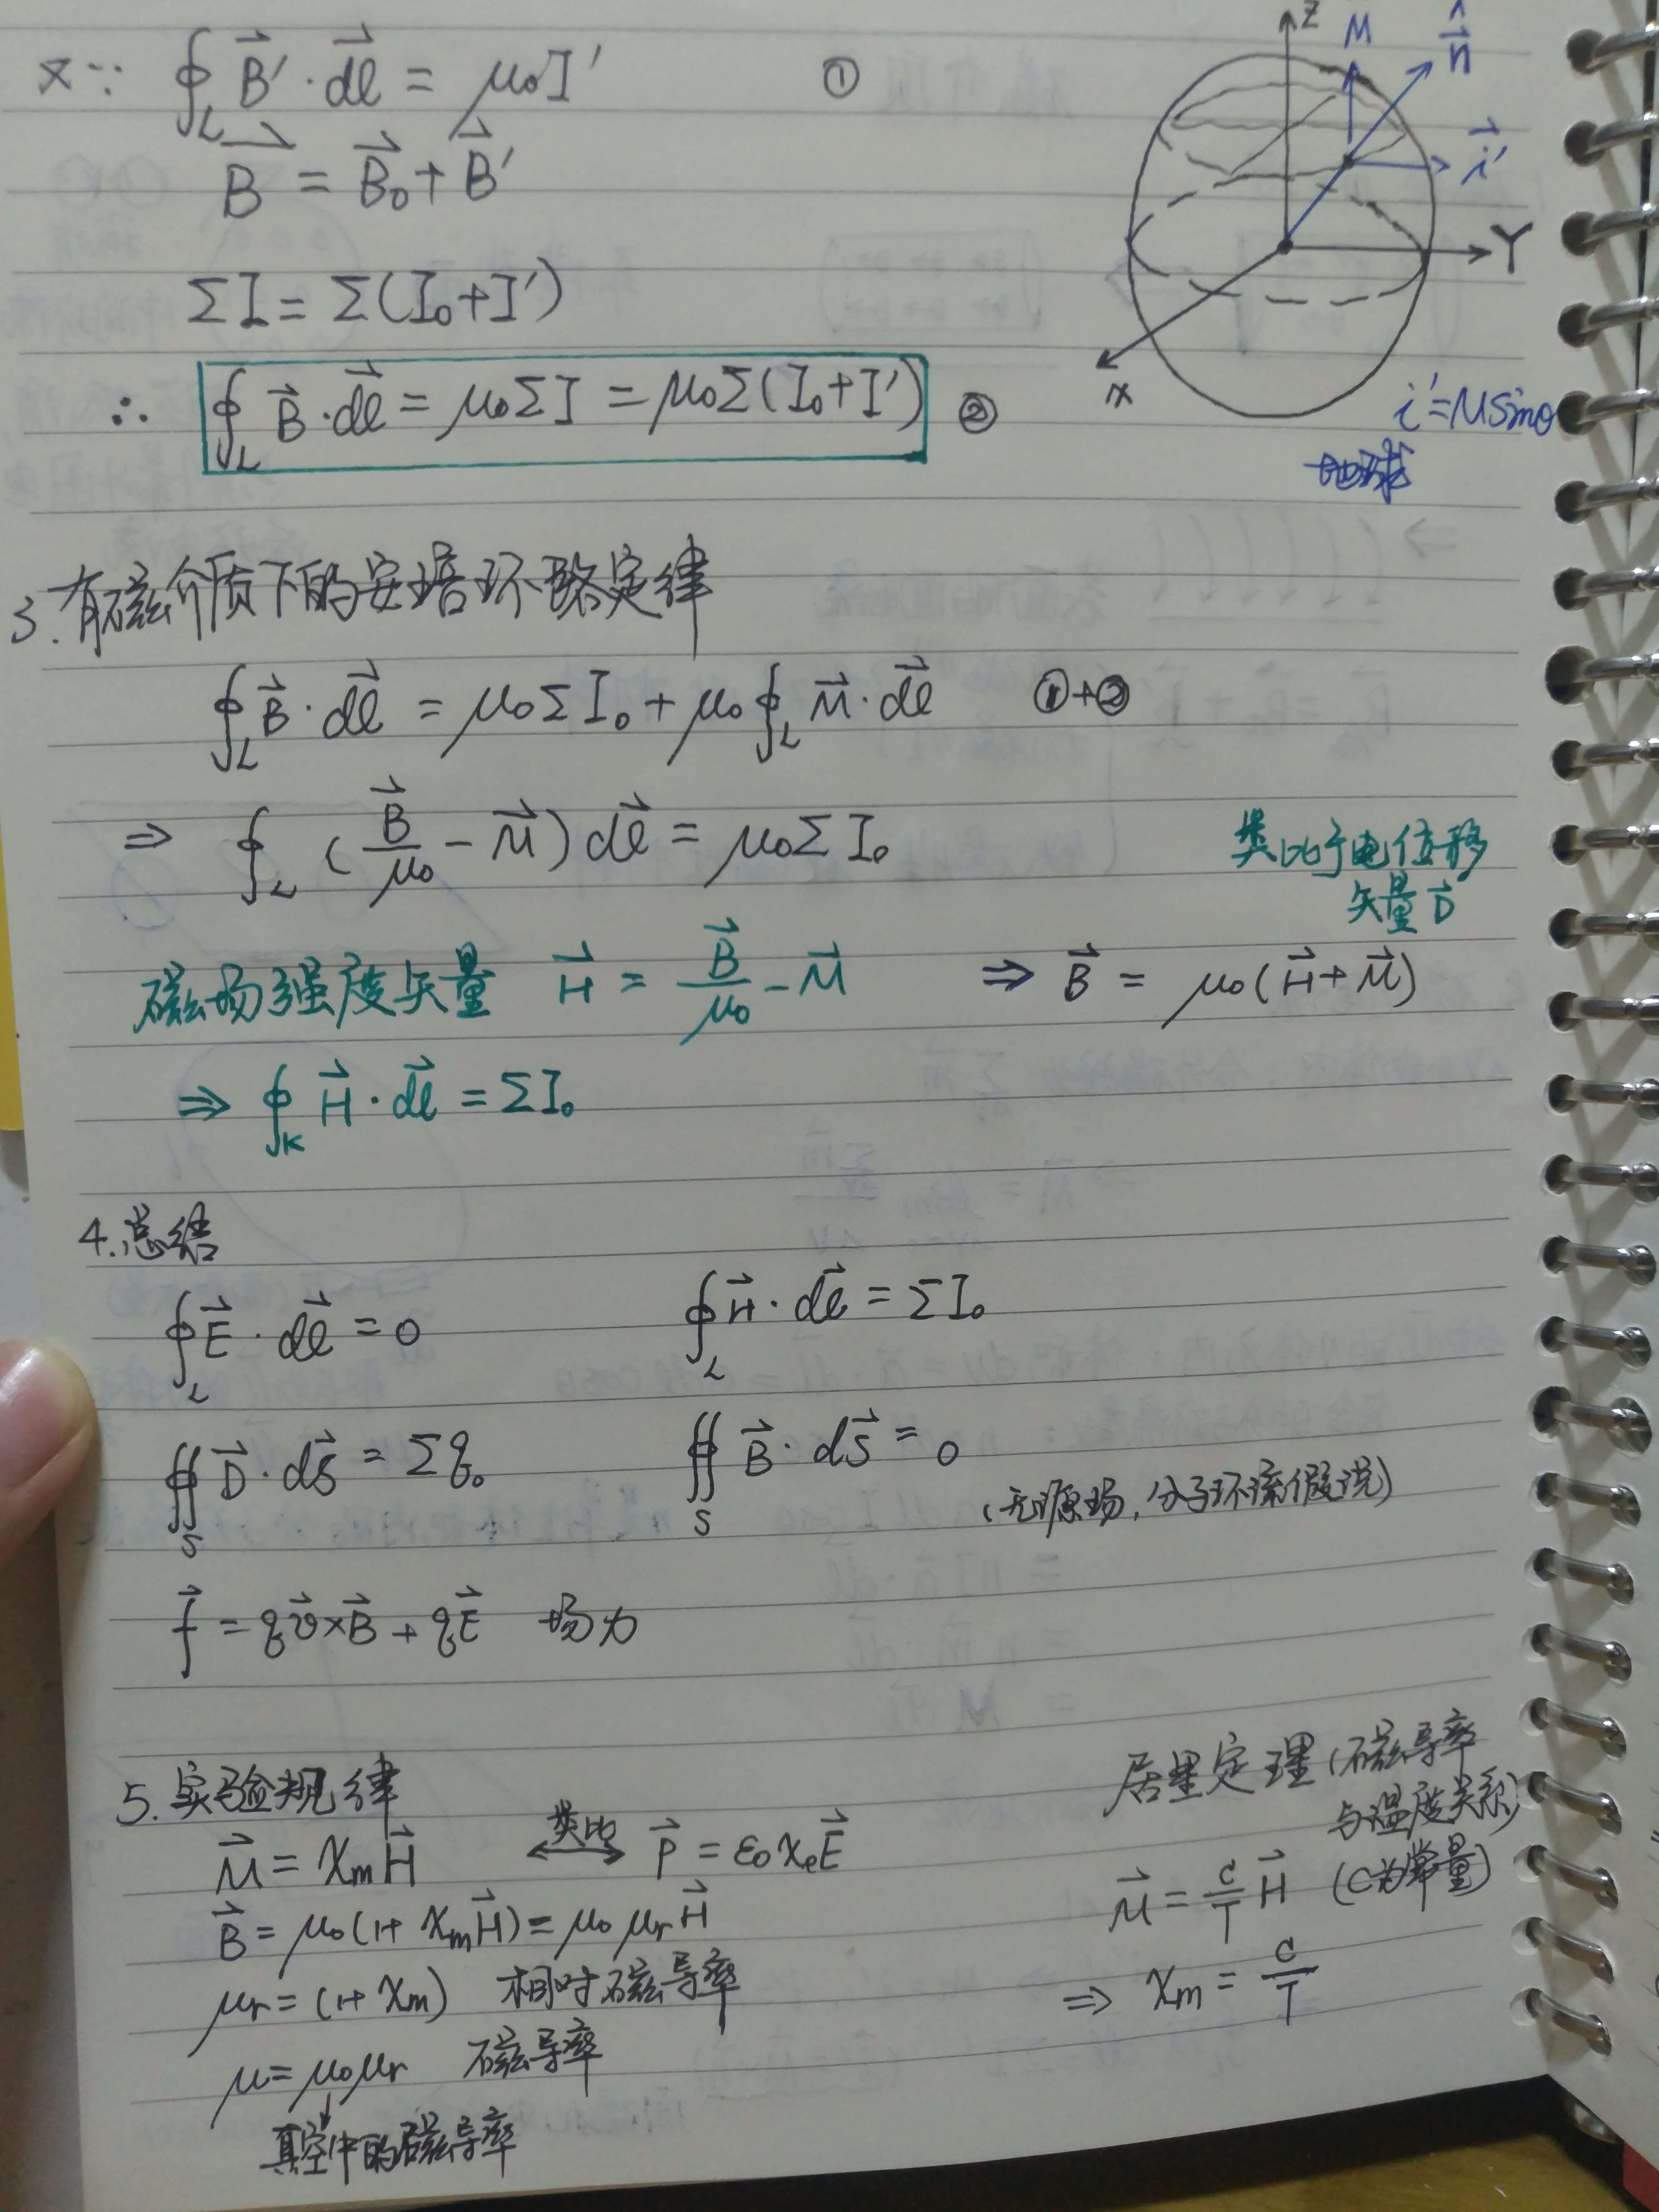 又∵ ∮_L B⃗'·dl⃗ = μ₀I' ①
B⃗ = B⃗₀ + B⃗'
ΣI = Σ(I₀+I')
∴ ∮_L B⃗·dl⃗ = μ₀ΣI = μ₀Σ(I₀+I') ②
Z
M
n̂
i⃗'
Y
x
i'=Msinθ
地球
3.有磁介质下的安培环路定律
∮_L B⃗·dl⃗ = μ₀ΣI₀ + μ₀∮_L M⃗·dl⃗ ①+②
⇒ ∮_L (B⃗/μ₀ - M⃗)dl⃗ = μ₀ΣI₀
类比于电位移
矢量D⃗
磁场强度矢量 H⃗ = B⃗/μ₀ - M⃗ ⇒ B⃗ = μ₀(H⃗+M⃗)
⇒ ∮_K H⃗·dl⃗ = ΣI₀
4.总结
∮_L E⃗·dl⃗ = 0 ∮_L H⃗·dl⃗ = ΣI₀
∯_S D⃗·dS⃗ = Σq₀ ∯_S B⃗·dS⃗ = 0
(无源场,分子环流假说)
f⃗ = qv⃗×B⃗ + qE⃗ 场力
5.实验规律
M⃗ = χmH⃗ ⟷类比 P⃗ = ε₀χeE⃗
B⃗ = μ₀(1+χmH⃗) = μ₀μrH⃗
μr = (1+χm) 相对磁导率
μ = μ₀μr 磁导率
↓
真空中的磁导率
居里定理(磁导率
与温度关系)
M⃗ = C/T H⃗ (C为常量)
⇒ χm = C/T